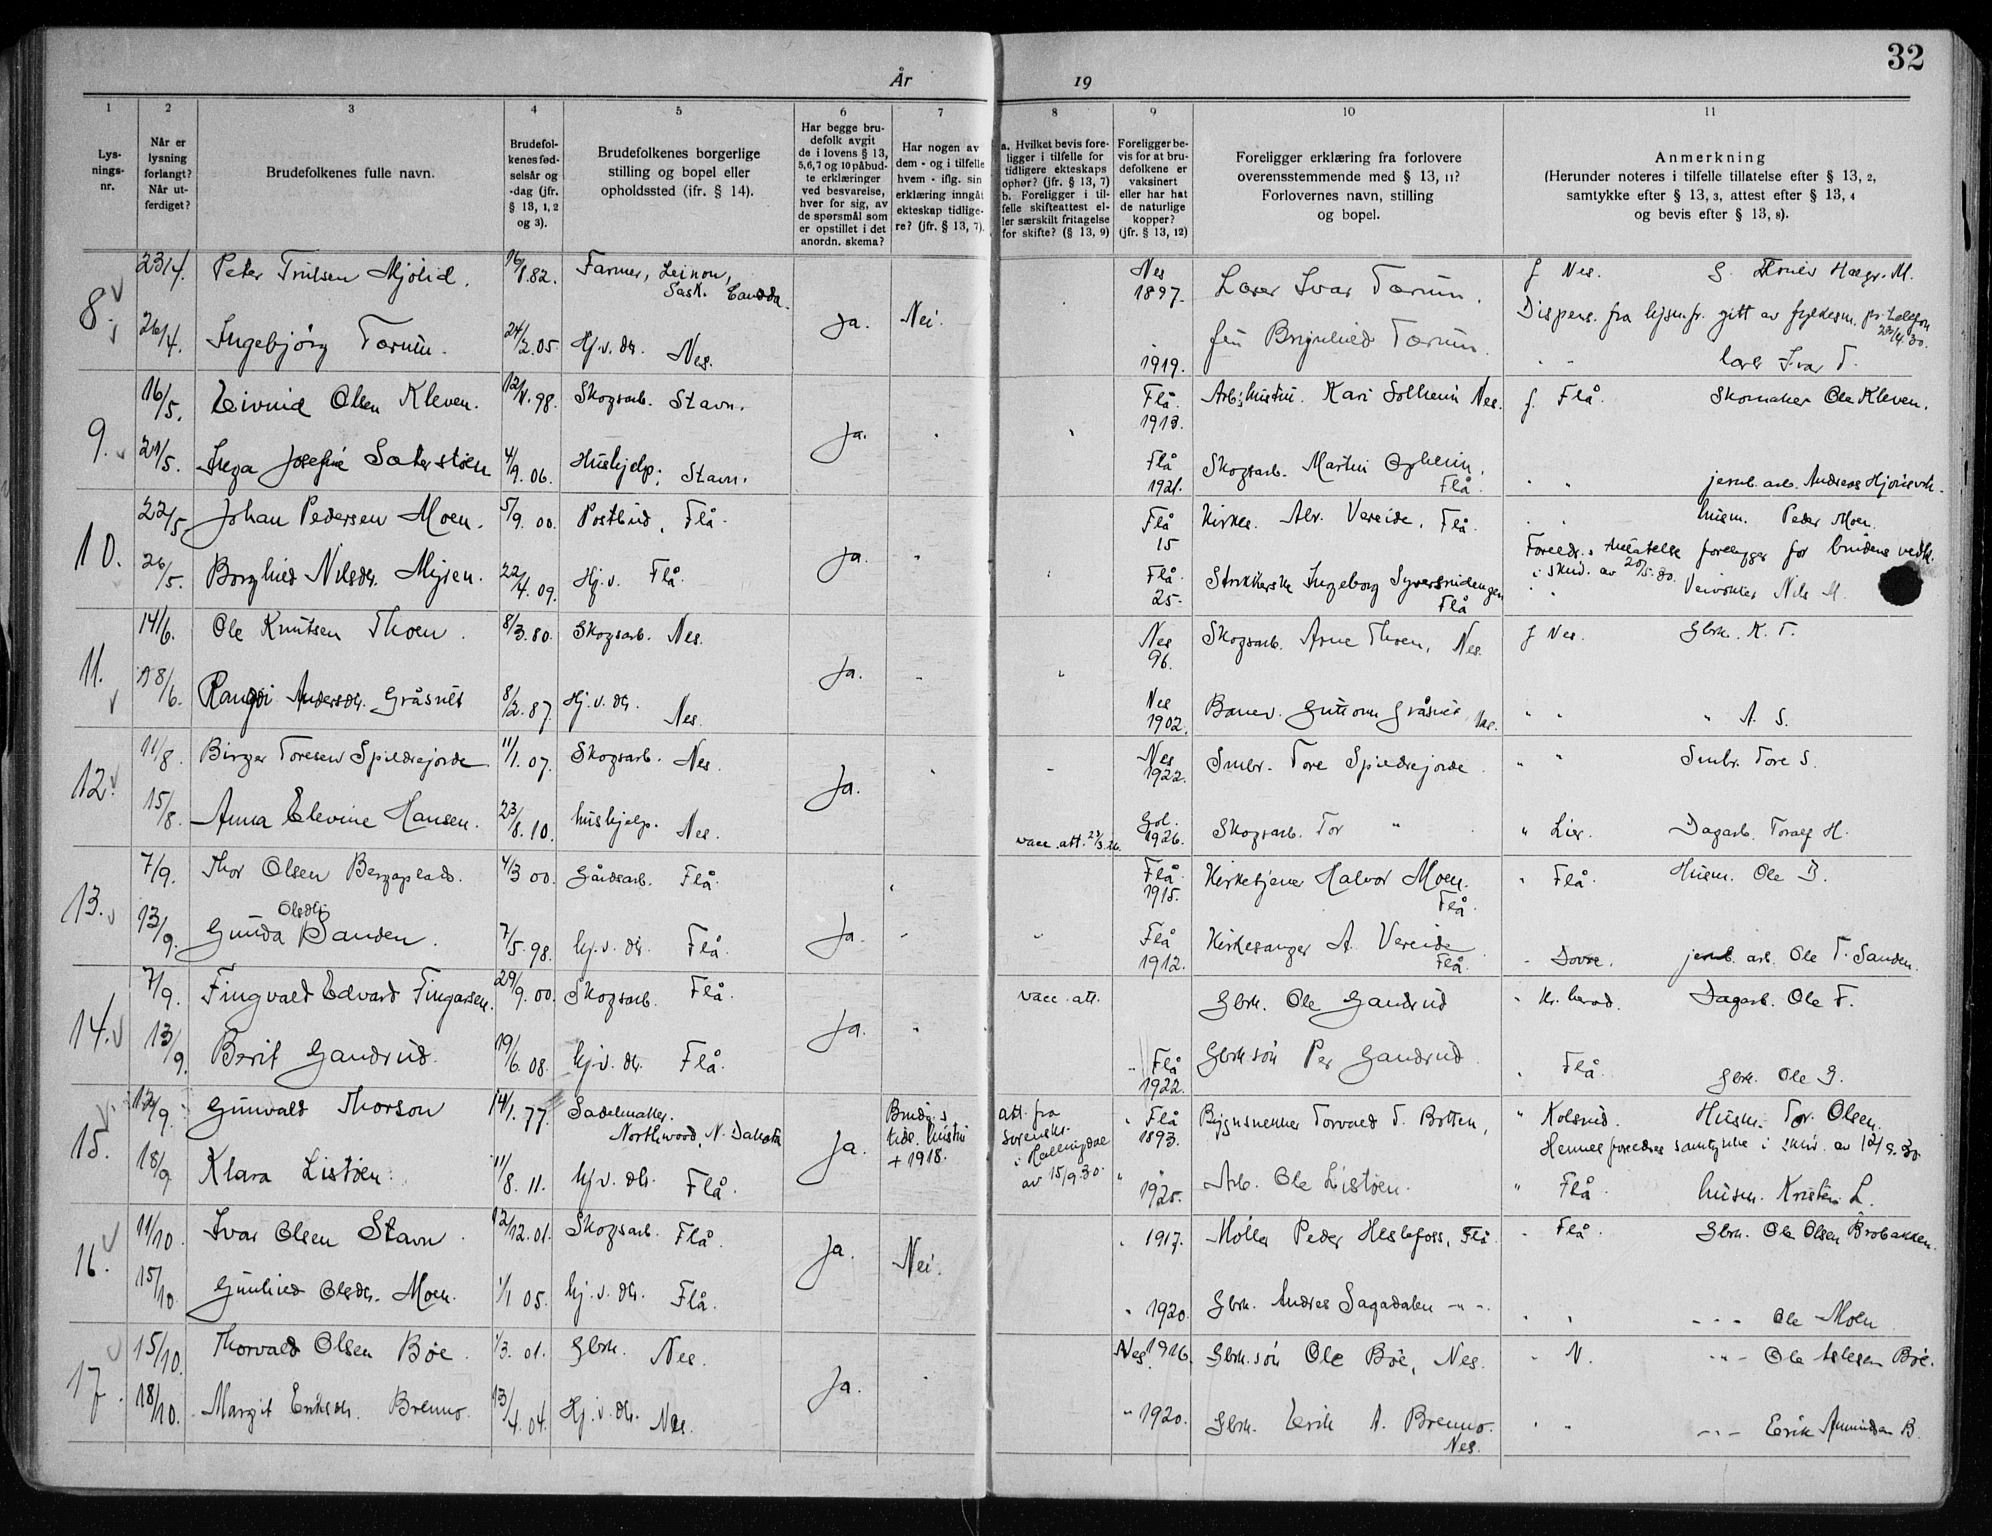 32
År 19
1 2 3 4 5 6 7 8 9 10 11
Lys-
nings-
nr.
Når er
lysning
forlangt?
Når ut-
ferdiget?
Brudefolkenes fulle navn.
Brudefol-
kenes fød-
selsår og
-dag (jfr.
§ 13, 1, 2
og 3).
Brudefolkenes borgerlige
stilling og bopel eller
opholdssted (ifr. § 14).
Har begge bru-
defolk avgit
de i lovens § 13,
5,6,7 og 10 påbud-
te erklæringer
ved besvarelse,
hver for sig, av
de spørsmål som
er opstillet i det
anordn. skema?
Har nogen av
dem - og i tilfelle
hvem - iflg. sin
erklæring inngåt
ekteskap tidlige-
re? (jfr. § 13, 7).
a. Hvilket bevis fore-
ligger i tilfelle for
tidligere ekteskaps
ophør? (jfr. § 13, 7)
b. Foreligger i til-
felle skifteattest el-
ler særskilt fritagelse
for skifte? (§ 13, 9)
Foreligger be-
vis for at bru-
defolkene er
vaksinert
eller har hat
de naturlige
kopper?
(jfr. § 13, 12)
Foreligger erklæring fra forlovere
overensstemmende med § 13, 11?
Forlovernes navn, stilling
og bopel.
Anmerkning
(Herunder noteres i tilfelle tillatelse efter § 13, 2,
samtykke efter § 13, 3, attest efter § 13, 4
og bevis efter § 13, 8).
8. 23/4. Peter Trulsen Mjölid. 16/8.82. Farmer, Leinon, Nes 1897. Lærer Ivar Tærum. f Nes.
Sask. Canada. Ja. Nei. Dispens. fra lysn.fr. gitt av fylkesm. pr. telefon 23/4.30.
26/4. Ingebjörg Tærum. 24/2.05. Hj.v. dtr. Nes. 1919. Brynhild Tærum. Ivar T.
9. 16/5. Eivind Olsen Kleven. 12/ .98. Skogsarb. Stavn. Ja. Flå. 1913. Arb.'s hustru Kari Solheim Nes. f. Flå. Skomaker Ole Kleven.
21/5. Inga Josefine Sæterstöen 4/9.06. Hushjelp, Stavn. Flå 1921. Skogsarb. Martin Opheim. Flå. jernb. arb. Andreas
10. 22/5 Johan Pedersen Moen. 5/9.00. Postbud, Flå. Ja. Flå 15 Kirkes. Alv. Vereide, Flå. husm. Peder Moen.
Foreldr.s tillatelse foreligger for brudens vedk.
i skud. av 20/5.30.
26/5. Borghild Nilsdtr. Myren. 22/4.09. Hj.v. Flå. Flå. 25. Ingeborg Flå Veivokter Nils M.
11. 14/6. Ole Knutsen Thoen. 8/3.80. Skogsarb. Nes. Ja. Nes 96. Skogsarb. Arne Thoen, Nes. f Nes. Gbrk. K. T.
18/6. Rangdi Andersdtr. Gråsvet 8/2.87. Hj.v. dtr. Nes. Nes 1902. Banev. Guttorm Gråsvet, Nes. " " " A. S.
12. 11/8. Birger Toresen Spildrejorde 11/1.07. Skogsarb. Nes. Ja. Nes 1922. Smbr. Tore Spildrejorde " " Smbr. Tore S.
15/8. Anna Elevine Hansen. 23/8.10. hushjelp. Nes. vacc. att. 23/3.26. Gol. 1926. Skogsarb. Tor " " Lier. Dagarb. Toralf H.
13. 7/9. Thor Olsen Bergaplads. 4/3 00. Gårdsarb. Flå. Ja. Flå. 1915. Kirketjener Halvor Moen. Flå. " Flå. Husm. Ole B.
13/9. Gunda Olsdtr. Sanden. 7/5.98. hj.v. dtr. Flå Flå 1912. Kirkesanger A. Vereide Flå. - Dovre. jernb. arb. Ole T. Sanden.
14. 7/9. Fingvald Edvard Fingarsen. 29/9.00. Skogsarb. Flå. Ja. vacc. att. Gbrk. Ole Gandrud Dagarb. Ole F.
13/9. Berit Gandrud. 19/6.08. hj.v. dtr. Flå. Flå 1922. Gbrk sön Per Gandrud Flå. Gbrk. Ole G.
15. 12/9. Gunvald Thorson 14/1.77. Sadelmaker. Brudg.s att. fra Flå 1893. Bygnsnekker Torvald T. Botten, " Kolsrud. Husm. Tor. Olsen.
Northwood, N. Dakota Ja. tidl. hustru + 1918. sorenskr. i Hallingdal av 15/9.30. Hennes foreldres samtykke i skriv. av 12/9.30
18/9 Klara Listöen. 11/8.11. hj.v. dtr. Flå. " 1925. Arb. Ole Listöen. " Flå husm. Kristen L.
16. 11/10 Ivar Olsen Stavn. 12/12.01. Skogsarb. Flå. Ja. Nei. 1917. Möller Peder Heslefoss, Flå. Flå. Gbrk. Ole Olsen Brobakken.
15/10. Gunhild Olsdtr. Moen. 1/1 05. hj.v. dtr. Flå. " 1920. Gbrk. Andres Sagadalen - " - - " - Ole Moen
17. 15/10. Thorvald Olsen Böe. 1/3.01. Gbrk. Nes. Ja. Nes 1916. Gbrk. sön Ole Böe, Nes. N. - " - Ole Aslesen Böe.
18/10. Margit Eriksdtr. Brenno. 13/4.04. Hj.v. dtr. Nes. " 1920. Gbrk. Erik A. Brenno. Nes. " " - " - Erik Amundsen B.